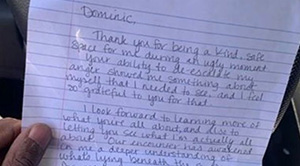 Dominic,
Thank you for being a kind, safe
space for me during an ugly moment
Your ability to de-escalate my
anger showed me something about
myself that I needed to see, and I feel
so grateful to you for that.
I look forward to learning more of
what there is about, and also to
letting you see what I'm actually all
about. Our encounter has
in me a deeper understanding of
what's lying beneath